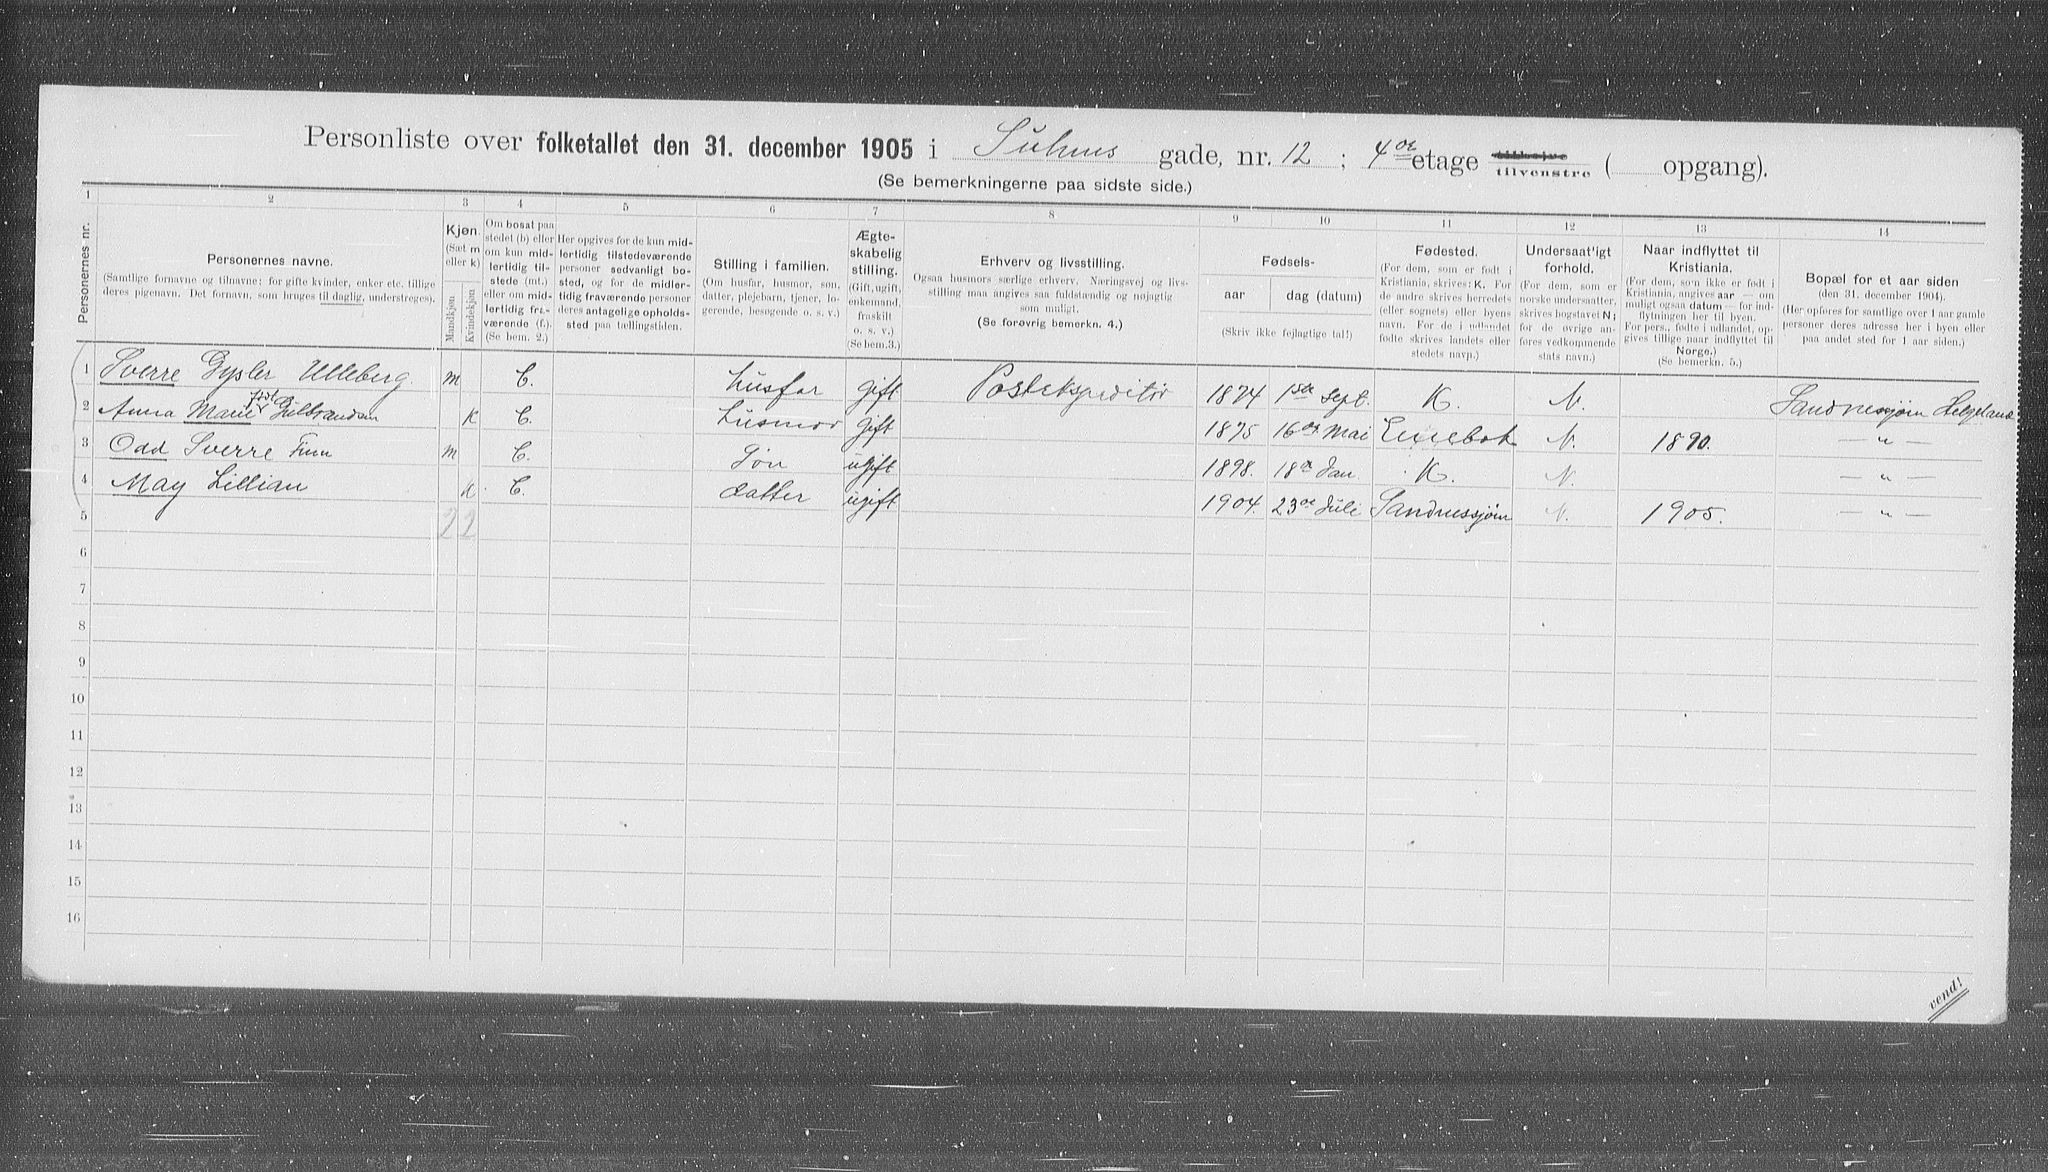 Personliste over folketallet den 31. december 1905 i Suhms gade, nr. 12 ; 4de etage tilhøire tilvenstre ( opgang).
(Se bemerkningerne paa sidste side.)
1 2 3 4 5 6 7 8 9 10 11 12 13 14
Personernes nr.
Personernes navne.
(Samtlige fornavne og tilnavne; for gifte kvinder, enker etc. tillige
deres pigenavn. Det fornavn, som bruges til daglig, understreges).
Kjøn
(Sæt m
eller k)
Mandkjøn
Kvindekjøn
Om bosat paa
stedet (b) eller
om kun mid-
lertidig til-
stede (mt.)
eller om mid-
lertidig fra-
værende (f.)
(Se bem. 2.)
Her opgives for de kun mid-
lertidig tilstedeværende
personer sedvanligt bo-
sted, og for de midler-
tidig fraværende personer
deres antagelige opholds-
sted paa tællingstiden.
Stilling i familien.
(Om husfar, husmor, søn,
datter, plejebarn, tjener, lo-
gerende, besøgende o. s. v.)
Ægte-
skabelig
stilling.
(Gift, ugift,
enkemand,
fraskilt
o. s. v.)
(Se bem.3.)
Erhverv og livsstilling.
Ogsaa husmors særlige erhverv. Næringsvej og livs-
stilling maa angives saa fuldstændig og nøjagtig
som muligt.
(Se forøvrig bemerkn. 4.)
Fødsels-
aar
dag (datum)
(Skriv ikke fejlagtige tal!)
Fødested.
(For dem, som er født i
Kristiania, skrives: K. For
de andre skrives herredets
(eller sognets) eller byens
navn. For de i udlandet
fødte skrives landets eller
stedets navn.)
Undersaat'igt
forhold.
(For dem, som er
norske undersaatter,
skrives bogstavet N;
for de øvrige an-
føres vedkommende
stats navn.)
Naar indflyttet til
Kristiania.
(For dem, som ikke er født i
Kristiania, angives aar — om
muligt ogsaa datum — for ind-
flytningen her til byen.
For pers., fødte i udlandet, op-
gives tillige naar indflyttet til
Norge.)
(Se bemerkn. 5.)
Bopæl for et aar siden
(den 31. december 1904).
(Her opføres for samtlige over 1 aar gamle
personer deres adresse her i byen eller
paa andet sted for 1 aar siden.)
1 Sverre Gysler Ulleberg. m b. husfar gift Postekspeditør 1874 15de Sept. K. N. Sandnessjøen Helgeland
2 Anna Marie født Gulbrandsen k b. husmor gift 1875 16de Mai Enebak N. 1890. — " —
3 Odd Sverre Finn m b. søn ugift 1898. 18de Jan. K. N. — " —
4 May Lillian k. b. datter ugift 1904. 23de Juli Sandnessjøen N. 1905. — " —
5 2 2
6
7
8
9
10
11
12
13
14
15
16
vend!